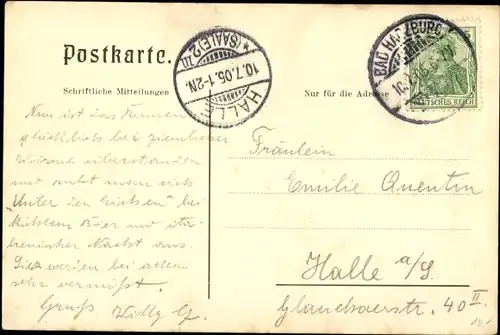 Postkarte.
Schriftliche Mitteilungen
Nur für die Adresse
HALLE
(SAALE) 2
10.7.05. 1-2N
BAD HARZBURG
DEUTSCHES REICH
Nun ist das Rennen
glücklich bei ziemlicher
überstanden
und ruht man sich
"Unter den Eichen" bei
Bier und
Nacht aus.
Sie werden bei allem
sehr vermißt.
Gruß Willy G.
Fräulein
Emilie Quentin
Halle a/S.
Glauchaerstr. 40 II